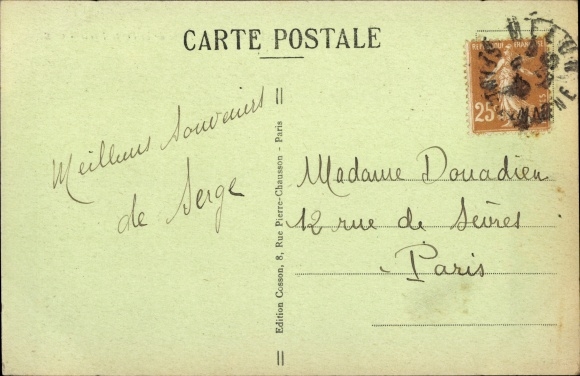 CARTE POSTALE
MELUN
REPUBLIQUE FRANÇAISE
25
MARNE
Meilleurs Souvenirs
de Serge
Edition Cosson, 8, Rue Pierre-Chausson - Paris
Madame Douadieu
12 rue de Sèvres
Paris